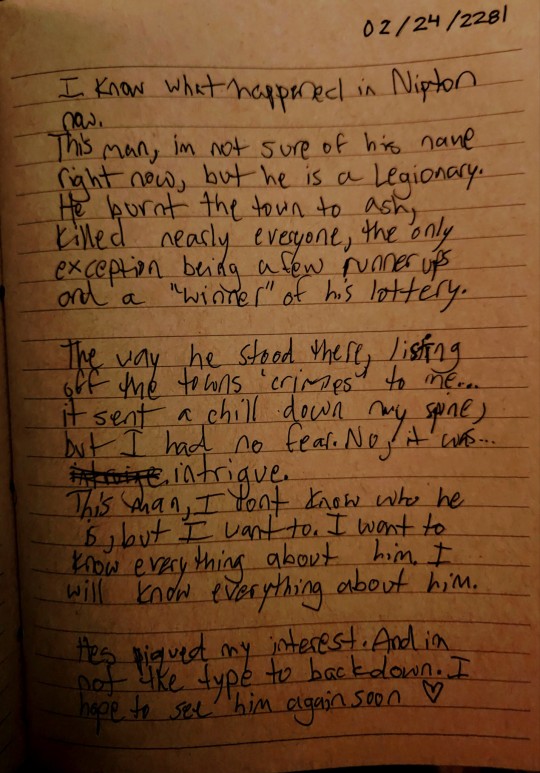 02/24/2281
I know what happened in Nipton
now.
This man, im not sure of his name
right now, but he is a Legionary.
He burnt the town to ash,
killed nearly everyone, the only
exception being a few runner ups
and a "winner" of his lottery.
The way he stood there, listing
off the towns "crimes" to me...
it sent a chill down my spine,
but I had no fear. No, it was...
intrigue.
This man, I dont know who he
is, but I want to. I want to
know everything about him. I
will know everything about him.
Hes piqued my interest. And im
not the type to backdown. I
hope to see him again soon ♡